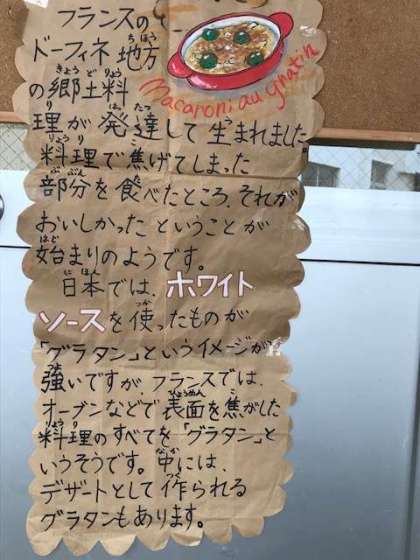 フランスの
ドーフィネ地方
の郷土料
理が発達して生まれました。
料理で焦げてしまった
部分を食べたところ、それが
おいしかったということが
始まりのようです。
日本では、ホワイト
ソースを使ったものが
「グラタン」というイメージが
強いですが、フランスでは、
オーブンなどで表面を焦がした
料理のすべてを「グラタン」と
いうそうです。中には、
デザートとして作られる
グラタンもあります。
Macaroni au gratin